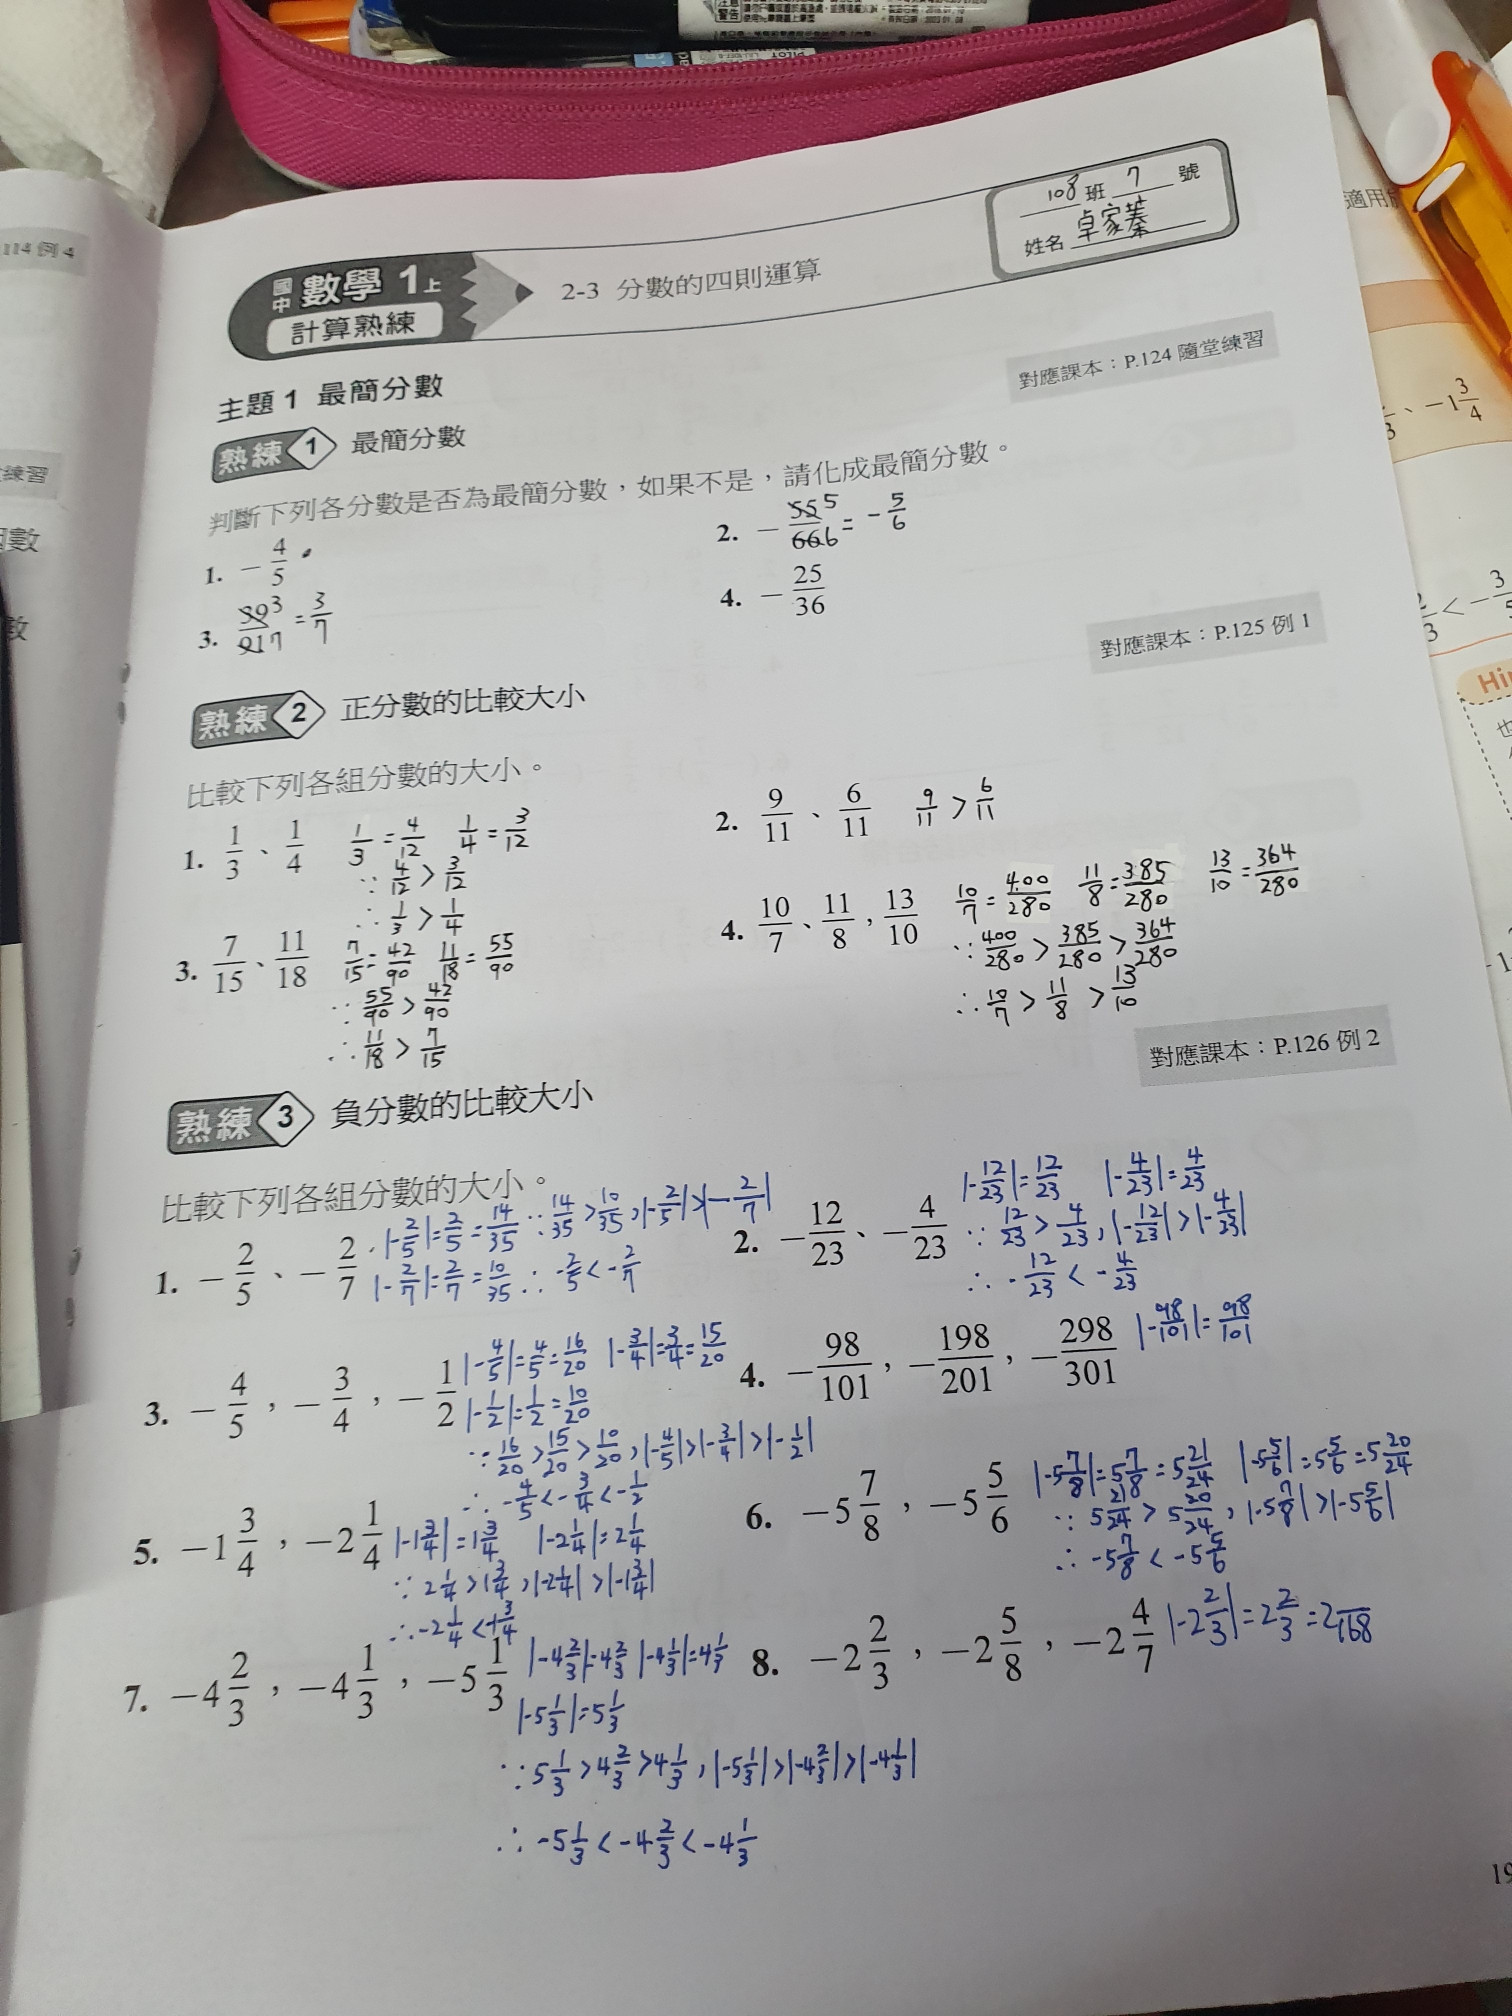 114 例 4
練習
個數
數
108 班 7 號
姓名 卓家蓁
適用於
國中 數學 1上
計算熟練
2-3 分數的四則運算
主題 1 最簡分數
對應課本：P.124 隨堂練習
熟練 1 最簡分數
判斷下列各分數是否為最簡分數，如果不是，請化成最簡分數。
1. -4/5
2. -55/66 5/6 = -5/6
3. 39/91 3/7 = 3/7
4. -25/36
對應課本：P.125 例 1
熟練 2 正分數的比較大小
比較下列各組分數的大小。
1. 1/3、1/4 1/3 = 4/12 1/4 = 3/12
∵ 4/12 > 3/12
∴ 1/3 > 1/4
2. 9/11、6/11 9/11 > 6/11
3. 7/15、11/18 7/15 = 42/90 11/18 = 55/90
∵ 55/90 > 42/90
∴ 11/18 > 7/15
4. 10/7、11/8，13/10 10/7 = 400/280 11/8 = 385/280 13/10 = 364/280
∵ 400/280 > 385/280 > 364/280
∴ 10/7 > 11/8 > 13/10
對應課本：P.126 例 2
熟練 3 負分數的比較大小
比較下列各組分數的大小。
1. -2/5、-2/7 |-2/5| = 2/5 = 14/35 ∵ 14/35 > 10/35, |-2/5| > |-2/7|
|-2/7| = 2/7 = 10/35 ∴ -2/5 < -2/7
2. -12/23、-4/23 |-12/23| = 12/23 |-4/23| = 4/23
∵ 12/23 > 4/23, |-12/23| > |-4/23|
∴ -12/23 < -4/23
3. -4/5，-3/4，-1/2 |-4/5| = 4/5 = 16/20 |-3/4| = 3/4 = 15/20
|-1/2| = 1/2 = 10/20
∵ 16/20 > 15/20 > 10/20, |-4/5| > |-3/4| > |-1/2|
∴ -4/5 < -3/4 < -1/2
4. -98/101，-198/201，-298/301 |-98/101| = 98/101
5. -1 3/4，-2 1/4 |-1 3/4| = 1 3/4 |-2 1/4| = 2 1/4
∵ 2 1/4 > 1 3/4, |-2 1/4| > |-1 3/4|
∴ -2 1/4 < -1 3/4
6. -5 7/8，-5 5/6 |-5 7/8| = 5 7/8 = 5 21/24 |-5 5/6| = 5 5/6 = 5 20/24
∵ 5 21/24 > 5 20/24, |-5 7/8| > |-5 5/6|
∴ -5 7/8 < -5 5/6
7. -4 2/3，-4 1/3，-5 1/3 |-4 2/3| = 4 2/3 |-4 1/3| = 4 1/3
|-5 1/3| = 5 1/3
∵ 5 1/3 > 4 2/3 > 4 1/3, |-5 1/3| > |-4 2/3| > |-4 1/3|
∴ -5 1/3 < -4 2/3 < -4 1/3
8. -2 2/3，-2 5/8，-2 4/7 |-2 2/3| = 2 2/3 = 2 /168
19